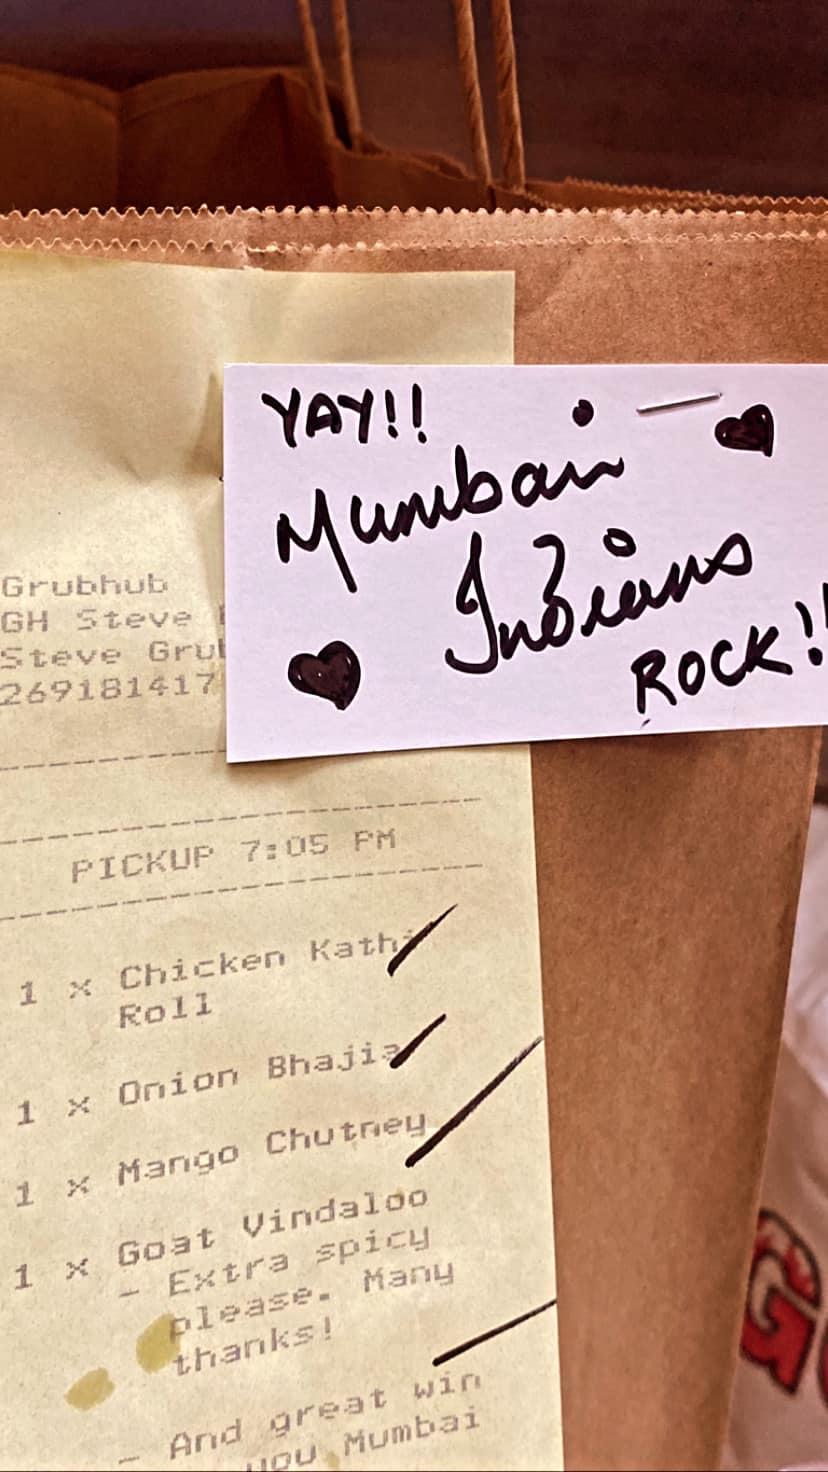 YAY!!
Mumbai
Indians
ROCK!!
Grubhub
GH Steve
Steve
269181417
PICKUP 7:05 PM
1 x Chicken Kathi
Roll
1 x Onion Bhajia
1 x Mango Chutney
1 x Goat Vindaloo
- Extra spicy
please. Many
thanks!
- And great win
you Mumbai